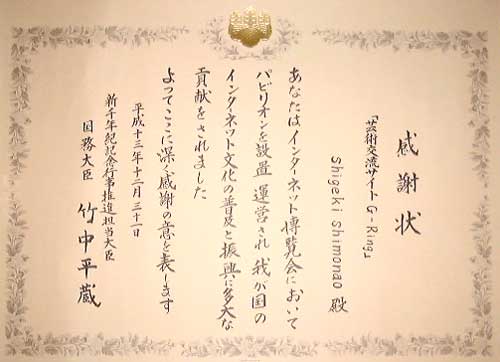 感謝状
「芸術交流サイトG-Ring」
Shigeki Shimonao 殿
あなたはインターネット博覧会において
パビリオンを設置 運営され 我が国の
インターネット文化の普及と振興に多大な
貢献をされました
よってここに深く感謝の意を表します
平成十三年十二月三十一日
新千年紀記念行事推進担当大臣
国務大臣 竹中平蔵